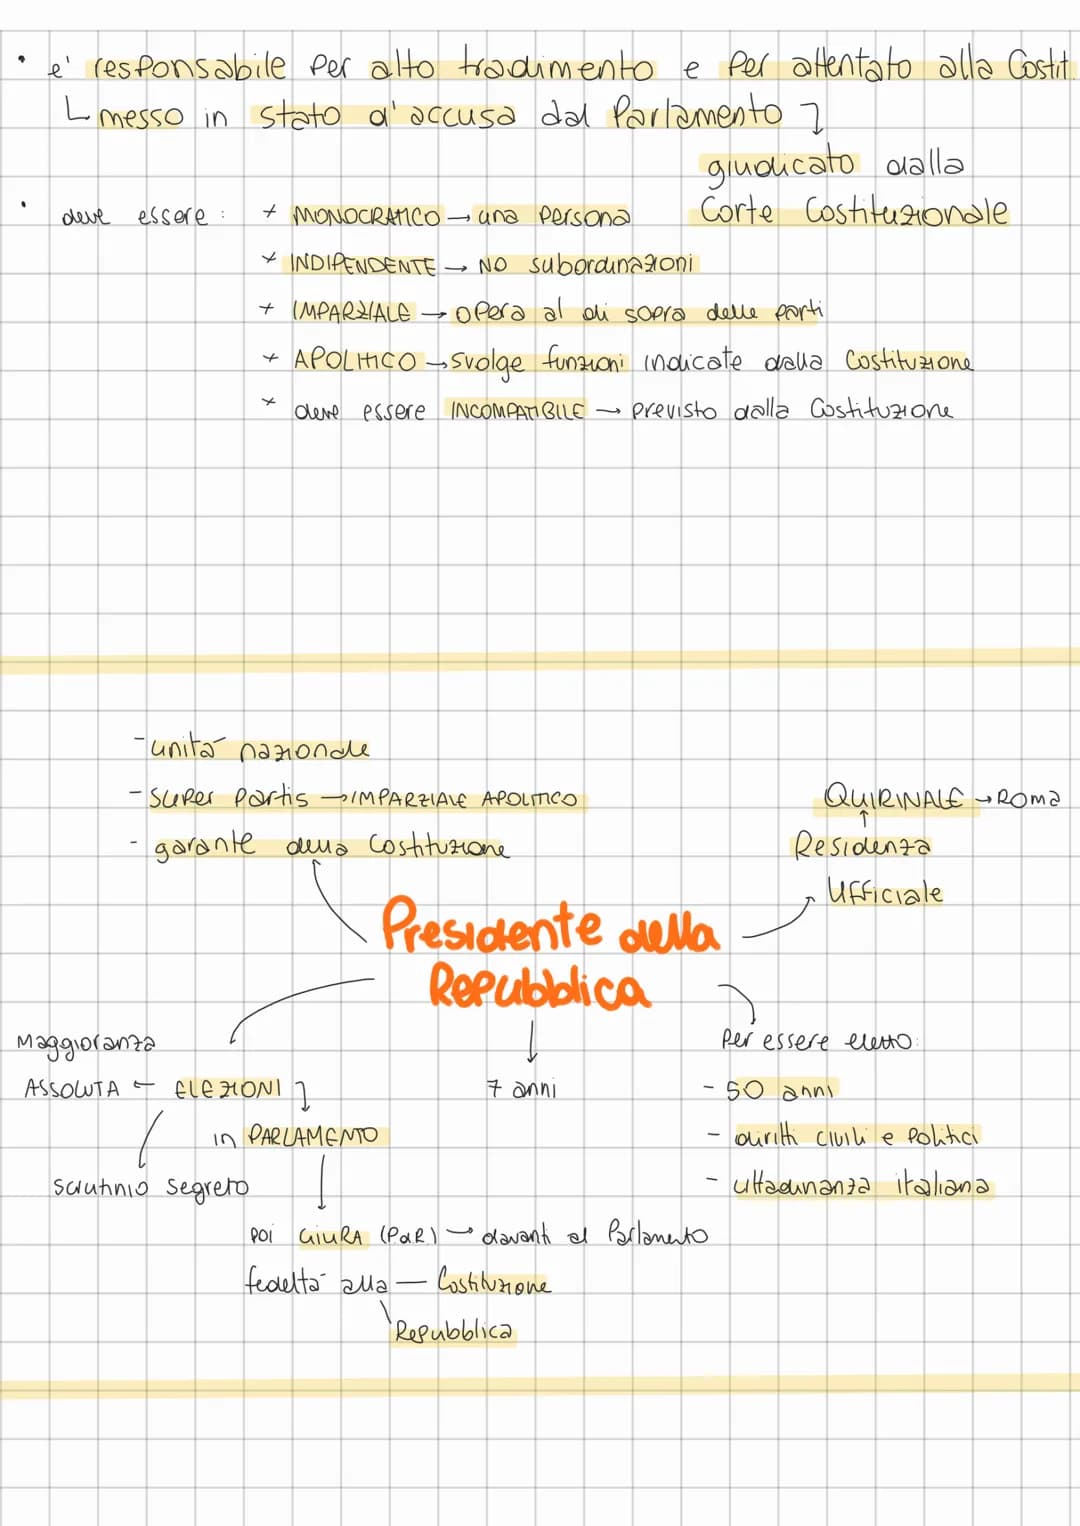 • e' responsabile per alto tradimento e per attentato alla Costit.
↳ messo in stato d'accusa dal Parlamento ↴
giudicato dalla
Corte Costituzionale
• deve essere : + MONOCRATICO → una persona
+ INDIPENDENTE → NO subordinazioni
+ IMPARZIALE → opera al di sopra delle parti
+ APOLITICO → svolge funzioni indicate dalla Costituzione
+ deve essere INCOMPATIBILE → previsto dalla Costituzione
- unità nazionale
- super partis → IMPARZIALE APOLITICO
- garante della Costituzione
QUIRINALE → Roma
↑
Residenza
Ufficiale
Presidente della
Repubblica
Maggioranza
ASSOLUTA ← ELEZIONI ↴
in PARLAMENTO
scrutinio segreto
poi GIURA (PdR) → davanti al Parlamento
fedeltà alla — Costituzione
Repubblica
7 anni
Per essere eletto:
- 50 anni
- diritti civili e politici
- cittadinanza italiana